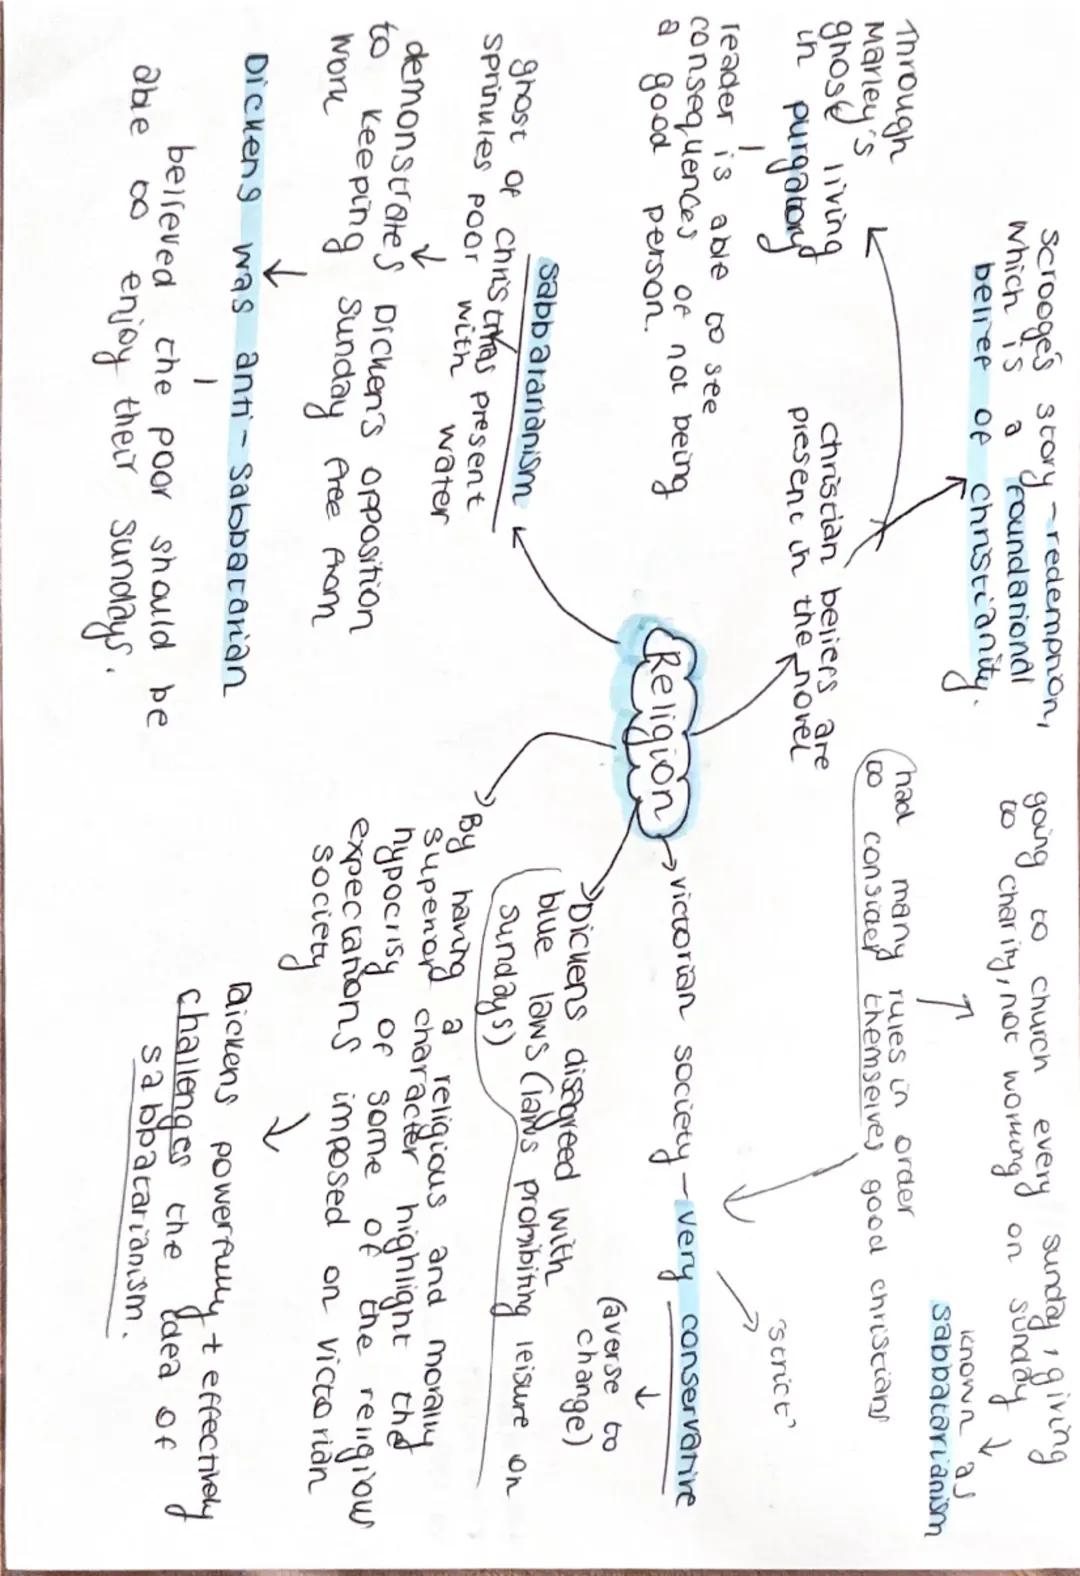 Scrooge's story - redemption,
which is a foundational
belief of christianity.
Through
Marley's
ghost living
in purgatory
reader is able to see
consequences of not being
a good person.
christian beliefs are
present in the novel
Religion
going to church every sunday, giving
to charity, not working on sunday
known as
sabbatarianism
had many rules in order
to consider themselves good christians
'strict'
victorian society - very conservative
(averse to
change)
Dickens disagreed with
blue laws (laws prohibiting leisure on
sundays)
By having a religious and morally
superior character highlight the
hypocrisy of some of the religious
expectations imposed on victorian
society
Dickens powerfully + effectively
challenges the idea of
sabbatarianism.
sabbatarianism
ghost of christmas present
sprinkles poor with water
demonstrates Dicken's opposition
to keeping sunday free from
work
Dickens was anti-sabbatarian
believed the poor should be
able to enjoy their sundays.